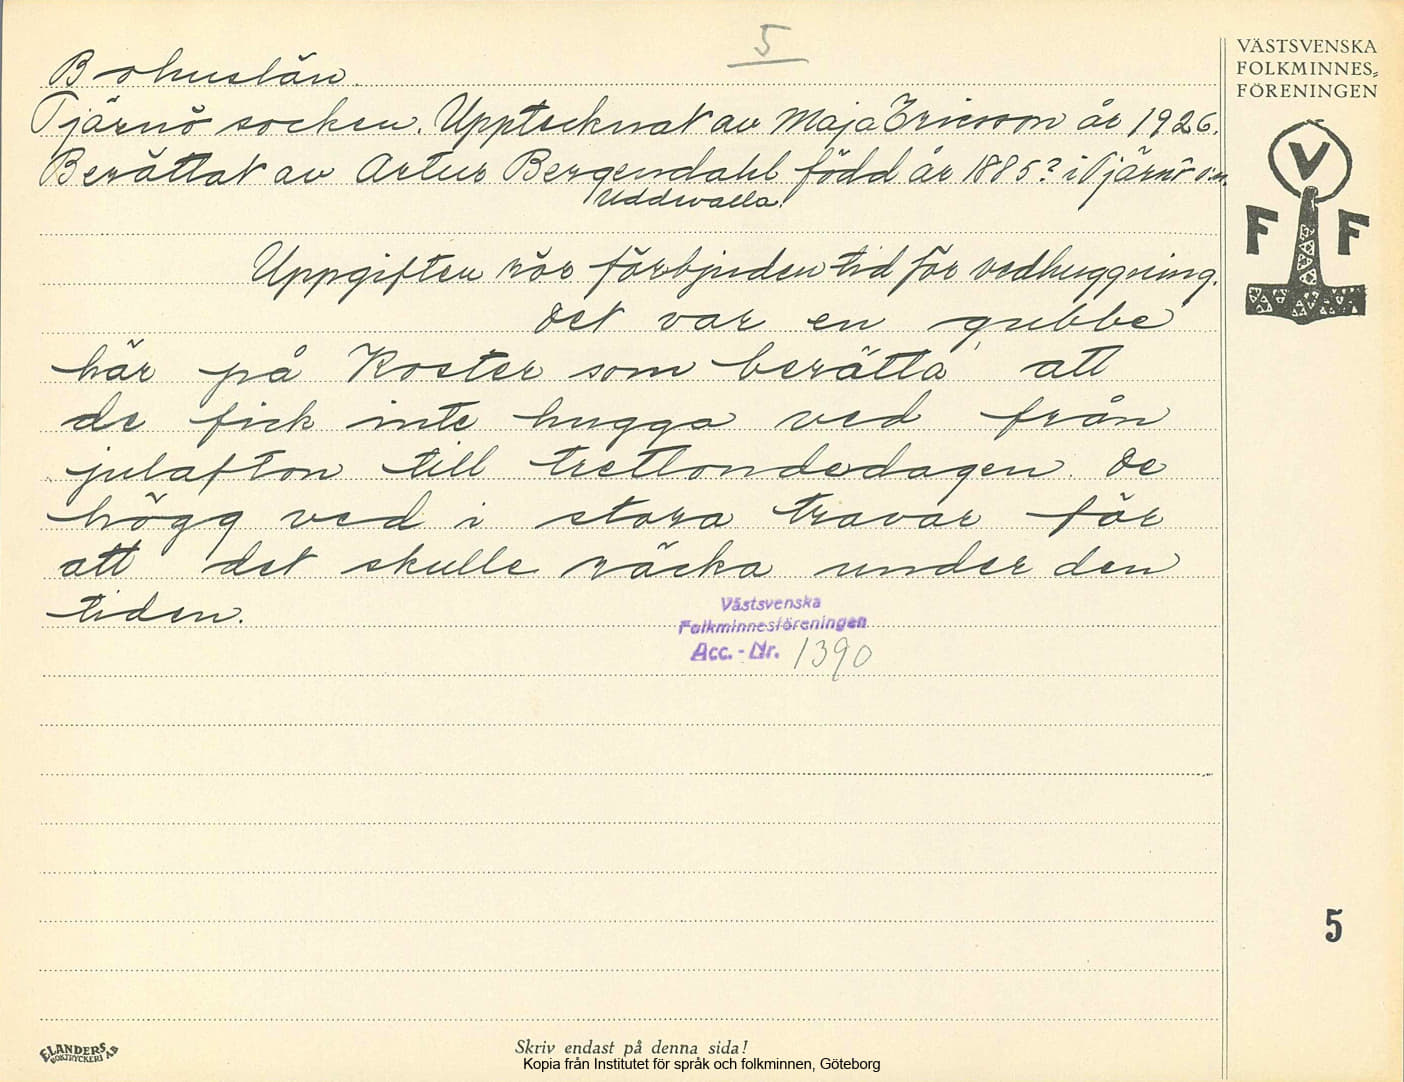 5
VÄSTSVENSKA
FOLKMINNES-
FÖRENINGEN
V
F F
Bohuslän.
Tjärnö socken. Upptecknat av Maja Ericsson år 1926.
Berättat av Artur Bergendahl född år 1885? i Tjärnö s:n.
Uddevalla.
Uppgiften rör förbjuden tid för vedhuggning.
Det var en gubbe
här på Koster som berätta, att
de fick inte hugga ved från
julafton till trettondedagen. De
högg ved i stora travar för
att det skulle räcka under den
tiden.
Västsvenska
Folkminnesföreningen
Acc.-Nr. 1390
5
ELANDERS
BOKTRYCKERI AB
Skriv endast på denna sida!
Kopia från Institutet för språk och folkminnen, Göteborg